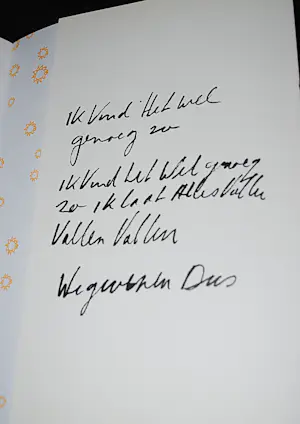 Ik Vind Het wel
genoeg zo
Ik Vind het Wel genoeg
zo ik laat Alles Vallen
Vallen Vallen
Wegwezen Dus